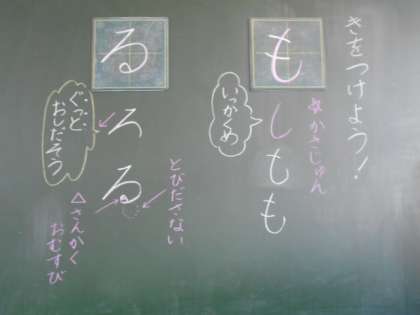 きをつけよう！
も
☆かきじゅん
し
も
も
いっかくめ
る
ろ
る
とびださない
ぐっと、
おしだそう
△さんかく
おむすび